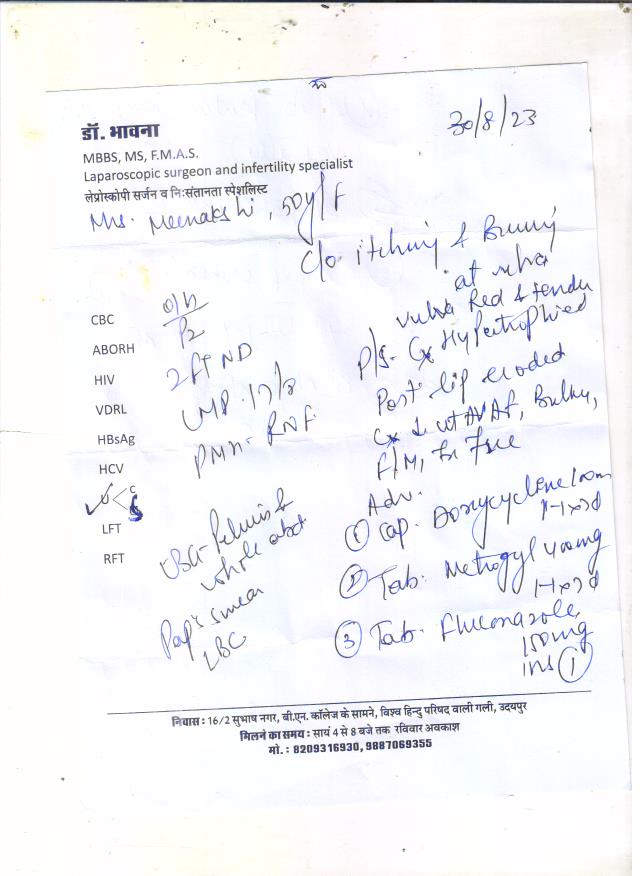 30/8/23
डॉ. भावना
MBBS, MS, F.M.A.S.
Laparoscopic surgeon and infertility specialist
लेप्रोस्कोपी सर्जन व निःसंतानता स्पेशलिस्ट
Mrs. Meenakshi, 50y/F
c/o itching & Burning
at vulva
Vulva Red & tender
P/S- Cx Hypertrophied
Post. lip eroded
Cx ut AVAF, Bulky,
F/M, Fx Free
O/H
P2
2 FTND
LMP- 17/8
PMH- RNF
CBC
ABORH
HIV
VDRL
HBsAg
HCV
U < C
LFT
RFT
USG- Pelvis &
whole abd
Pap's smear
LBC
Adv.
① Cap. Doxycycline 100m
1-1 x 7d
② Tab. Metrogyl 400mg
1-1 x 7d
③ Tab. Fluconazole
150mg
①
निवास : 16/2 सुभाष नगर, बी.एन. कॉलेज के सामने, विश्व हिन्दु परिषद वाली गली, उदयपुर
मिलने का समय : सायं 4 से 8 बजे तक रविवार अवकाश
मो. : 8209316930, 9887069355